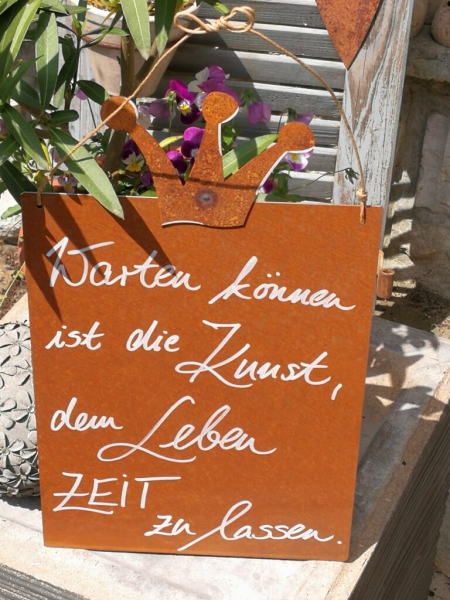 Warten können
ist die Kunst,
dem Leben
ZEIT
zu lassen.